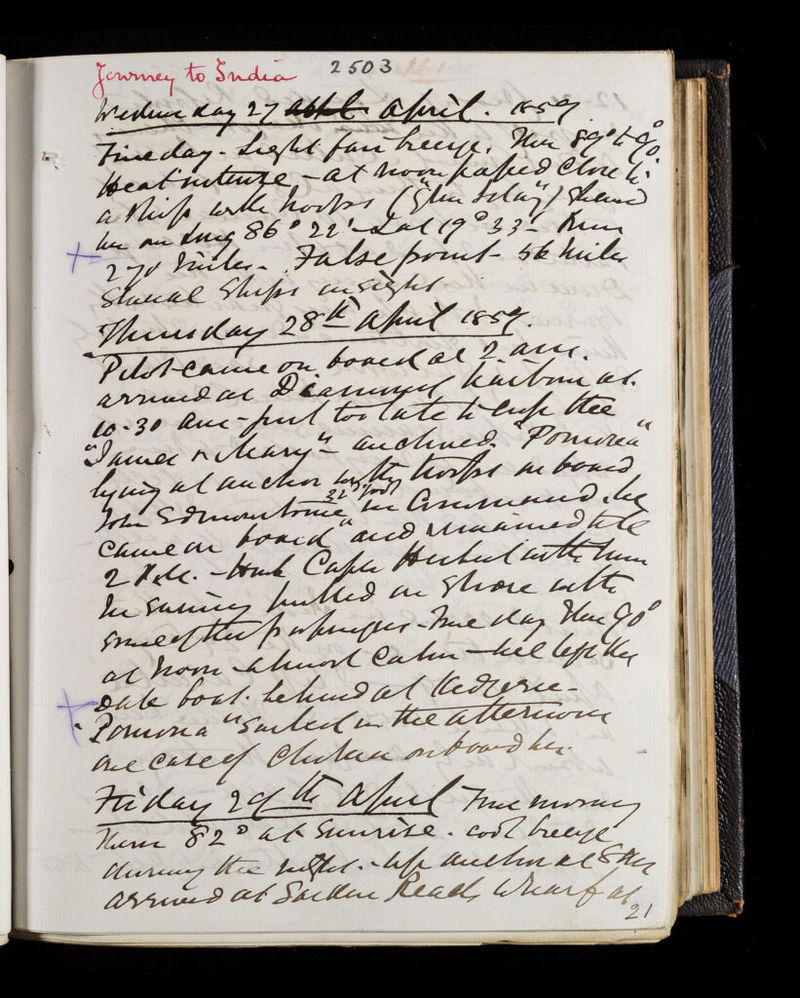 Journey to India 2503
Wednesday 27 April. 1859
Fine day - Light fair breeze. Ther 89° to 90°
Heat intense - at noon passed close to
a ship with troops ("Glen Isla")
Long 86° 22' - Lat 19° 33' - Run
270 Miles - False point - 56 miles
Several Ships in sight
Thursday 28th April 1859.
Pilot came on board at 2 am.
arrived at Diamond Harbour at
10-30 am - just too late to the
"James & Mary" - anchored. "Pomona"
lying at anchor with troops on board
John Edmonstone in Command. he
came on board and remained till
2 P.M. - Capn Herbert with him
In evening pulled on shore with
some of the passengers - Fine day Ther 90°
at Noon - almost Calm - We left the
boat behind at Kedgeree -
"Pomona" Sailed in the afternoon
one case of Cholera on board her.
Friday 29th April Fine morning
Therm 82° at Sunrise - cool breeze
during the night. - up anchor at 8 AM
arrived at Garden Reach Wharf at
21